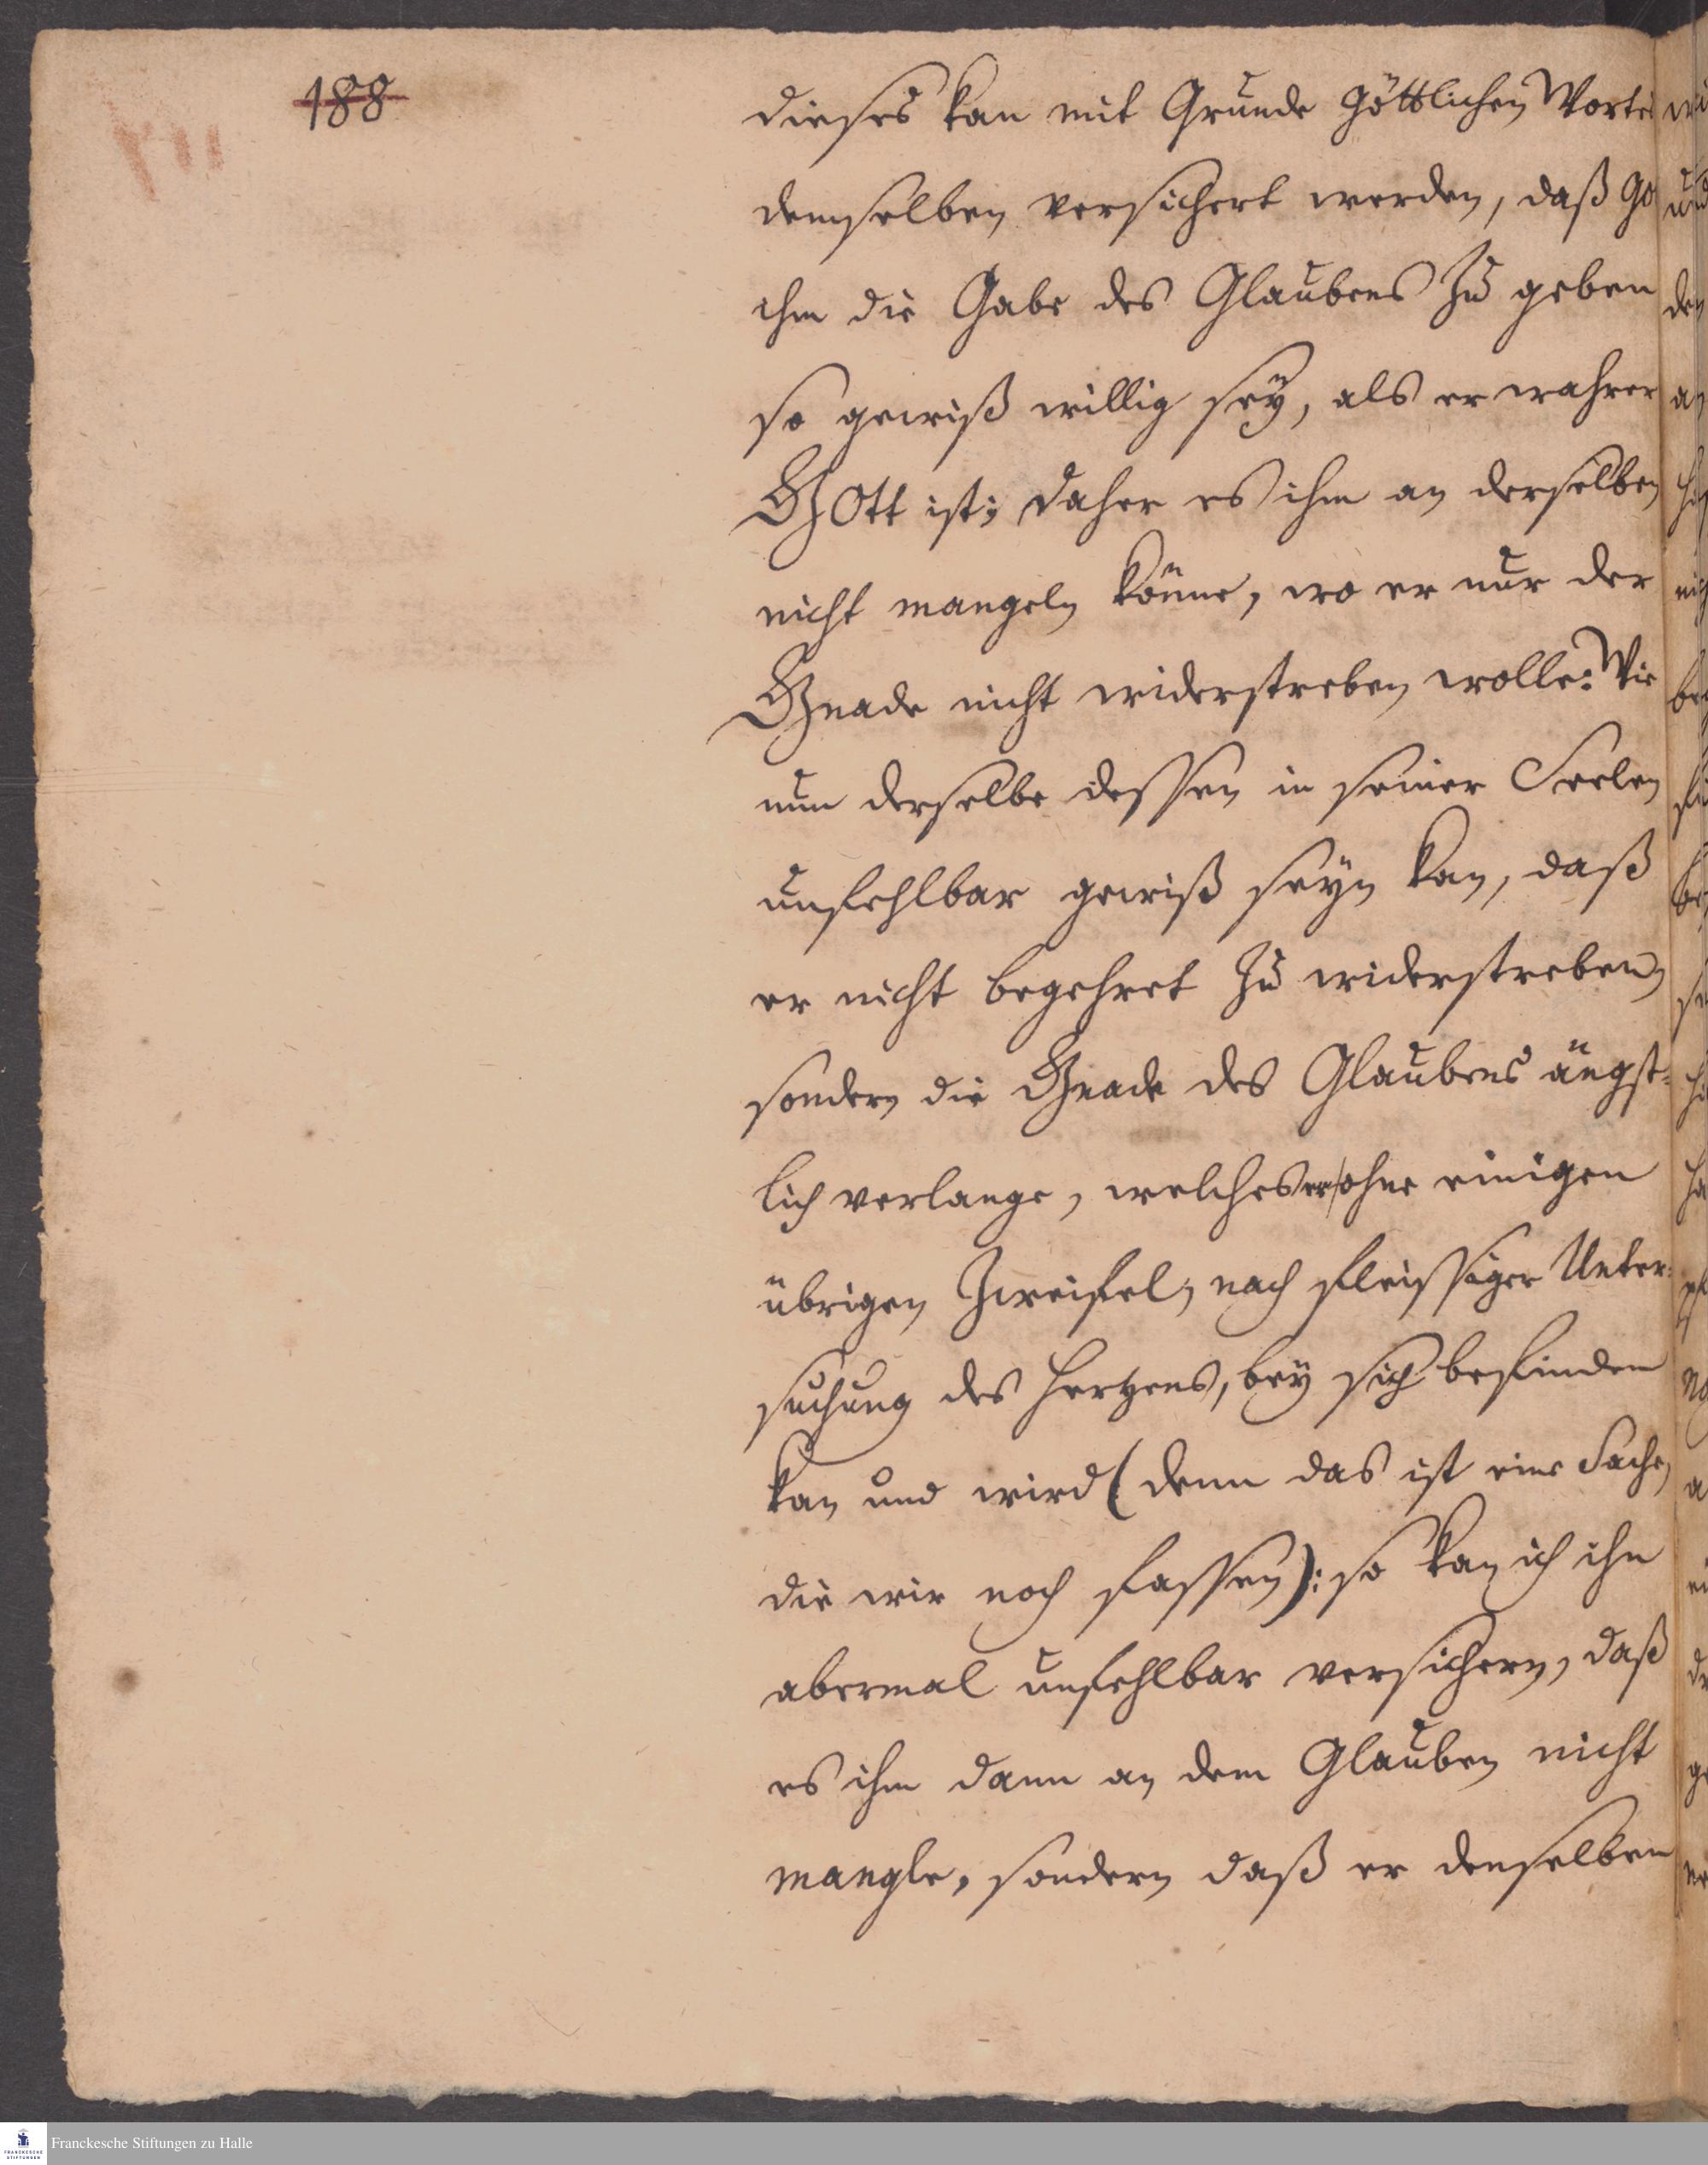 188
dieses kan mit Grunde Göttlichen Wortes
demselben versichert werden, daß Go
ihm die Gabe des Glaubens zu geben
so gewiß willig seÿ, als er wahrer
GOtt ist; daher es ihm an derselben
nicht mangeln könne, wo er nur der
Gnade nicht widerstreben wolle: Wie
nun derselbe dessen in seiner Seelen
unfehlbar gewiß seÿn kan, daß
er nicht begehret zu widerstreben,
sondern die Gnade des Glaubens ängst-
lich verlange, welches er ohne einigen
übrigen Zweifel, nach fleissiger Unter-
suchung des Hertzens, beÿ sich befinden
kan und wird (denn das ist eine Sache,
die wir noch fassen): so kan ich ihn
abermal unfehlbar versichern, daß
es ihm dann an dem Glauben nicht
mangle, sondern daß er denselben
Franckesche Stiftungen zu Halle